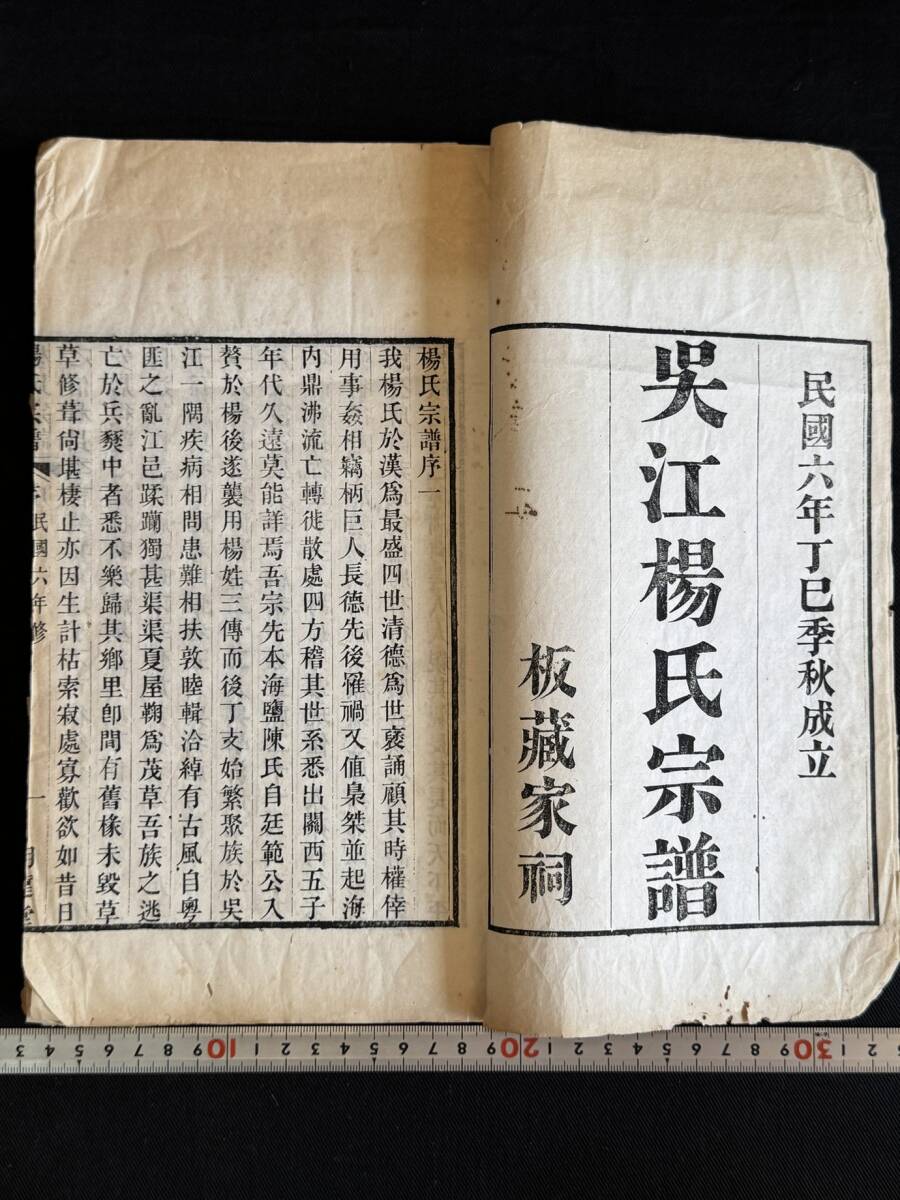 民國六年丁巳季秋成立
吳江楊氏宗譜
板藏家祠
楊氏宗譜序一
我楊氏於漢爲最盛四世清德爲世褒誦顧其時權倖
用事姦相竊柄巨人長德先後罹禍又值梟桀並起海
內鼎沸流亡轉徙散處四方稽其世系悉出關西五子
年代久遠莫能詳焉吾宗先本海鹽陳氏自廷範公入
贅於楊後遂襲用楊姓三傳而後丁支始繁聚族於吳
江一隅疾病相問患難相扶敦睦輯洽綽有古風自粵
匪之亂江邑蹂躪獨甚渠渠夏屋鞠爲茂草吾族之逃
亡於兵燹中者悉不樂歸其鄉里卽間有舊椽未毀草
草修葺尙堪棲止亦因生計枯索寂處寡歡欲如昔日
楊氏宗譜 序 民國六年修 一
10 20 30